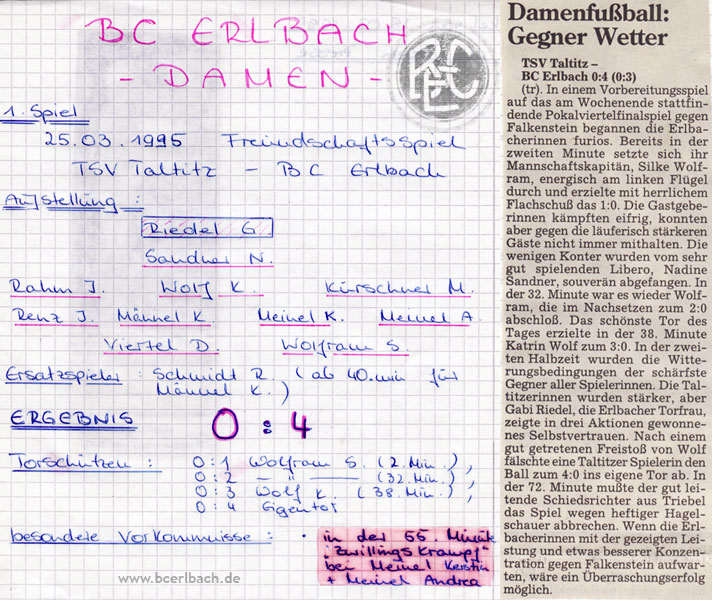 BC ERLBACH
- DAMEN -
BCE
1. Spiel
25.03.1995 Freundschaftsspiel
TSV Taltitz - BC Erlbach
Aufstellung :
Riedel G
Sandner N.
Rahm J. Wolf K. Kürschner M.
Renz J. Männel K. Meinel K. Meinel A.
Viertel D. Wolfram S.
Ersatzspieler : Schmidt R. (ab 40.min für
Männel K.)
ERGEBNIS 0 : 4
Torschützen : 0:1 Wolfram S. (2. Min.),
0:2 — " — (32. Min.),
0:3 Wolf K. (38. Min.),
0:4 Eigentor
besondere Vorkommnisse : • in der 55. Minute
"Zwillingskrampf"
bei Meinel Kristin
+ Meinel Andrea
www.bcerlbach.de
Damenfußball:
Gegner Wetter
TSV Taltitz –
BC Erlbach 0:4 (0:3)
(tr). In einem Vorbereitungsspiel
auf das am Wochenende stattfin-
dende Pokalviertelfinalspiel gegen
Falkenstein begannen die Erlba-
cherinnen furios. Bereits in der
zweiten Minute setzte sich ihr
Mannschaftskapitän, Silke Wolf-
ram, energisch am linken Flügel
durch und erzielte mit herrlichem
Flachschuß das 1:0. Die Gastgebe-
rinnen kämpften eifrig, konnten
aber gegen die läuferisch stärkeren
Gäste nicht immer mithalten. Die
wenigen Konter wurden vom sehr
gut spielenden Libero, Nadine
Sandner, souverän abgefangen. In
der 32. Minute war es wieder Wolf-
ram, die im Nachsetzen zum 2:0
abschloß. Das schönste Tor des
Tages erzielte in der 38. Minute
Katrin Wolf zum 3:0. In der zwei-
ten Halbzeit wurden die Witte-
rungsbedingungen der schärfste
Gegner aller Spielerinnen. Die Tal-
titzerinnen wurden stärker, aber
Gabi Riedel, die Erlbacher Torfrau,
zeigte in drei Aktionen gewonne-
nes Selbstvertrauen. Nach einem
gut getretenen Freistoß von Wolf
fälschte eine Taltitzer Spielerin den
Ball zum 4:0 ins eigene Tor ab. In
der 72. Minute mußte der gut lei-
tende Schiedsrichter aus Triebel
das Spiel wegen heftiger Hagel-
schauer abbrechen. Wenn die Erl-
bacherinnen mit der gezeigten Lei-
stung und etwas besserer Konzen-
tration gegen Falkenstein aufwar-
ten, wäre ein Überraschungserfolg
möglich.